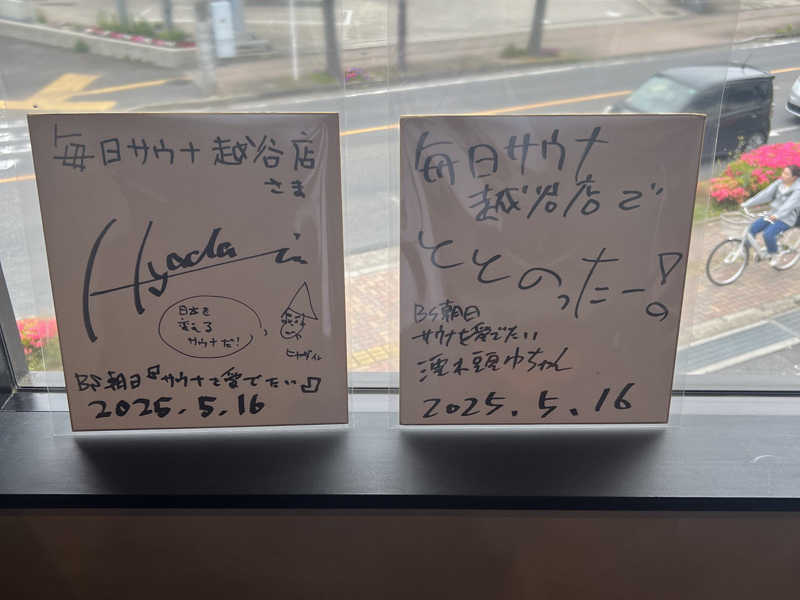 毎日サウナ 越谷店
さま
Hyada
日本を
変える
サウナだ!
ヒャダイン
BS朝日『サウナを愛でたい』
2025.5.16
毎日サウナ
越谷店で
ととのったー!
BS朝日
サウナを愛でたい
濡れ頭巾ちゃん
2025.5.16